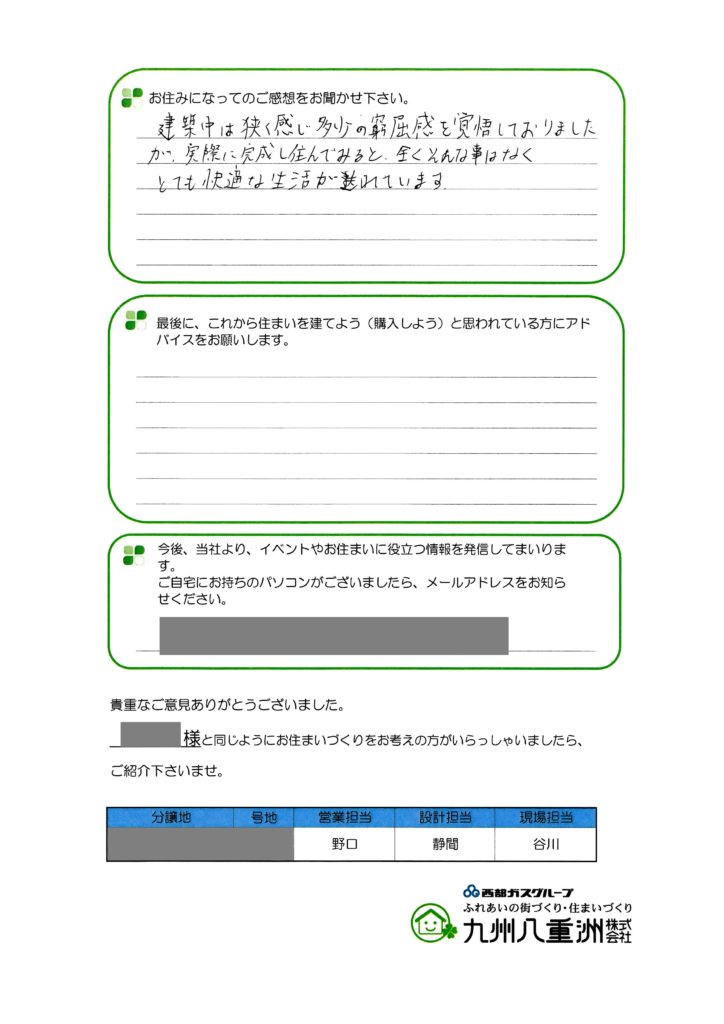 お住みになってのご感想をお聞かせ下さい。
建築中は狭く感じ多少の窮屈感を覚悟しておりました
が、実際に完成し住んでみると、全くそんな事はなく
とても快適な生活が送れています
最後に、これから住まいを建てよう（購入しよう）と思われている方にアド
バイスをお願いします。
今後、当社より、イベントやお住まいに役立つ情報を発信してまいりま
す。
ご自宅にお持ちのパソコンがございましたら、メールアドレスをお知ら
せください。
貴重なご意見ありがとうございました。
様と同じようにお住まいづくりをお考えの方がいらっしゃいましたら、
ご紹介下さいませ。
分譲地 号地 営業担当 設計担当 現場担当
野口 静間 谷川
西部ガスグループ
ふれあいの街づくり・住まいづくり
九州八重洲株式会社